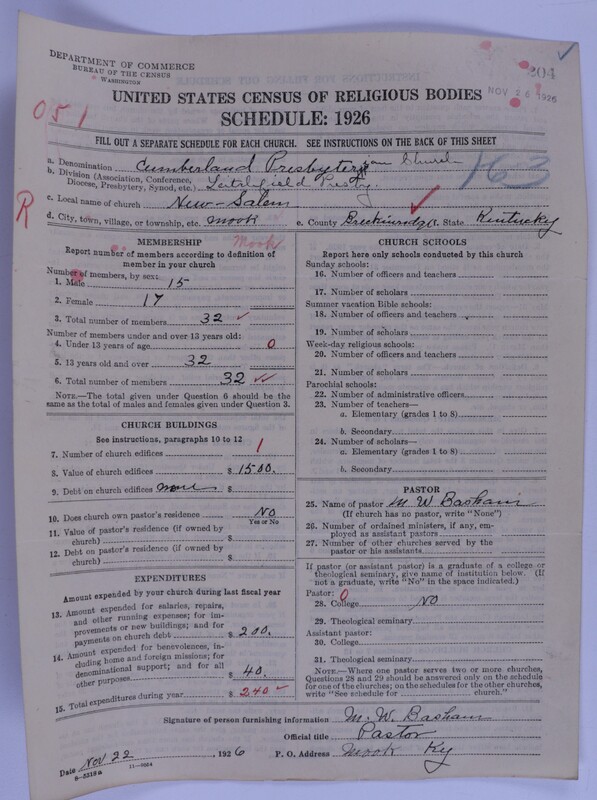 DEPARTMENT OF COMMERCE
BUREAU OF THE CENSUS
WASHINGTON
204
NOV 26 1926
UNITED STATES CENSUS OF RELIGIOUS BODIES
SCHEDULE: 1926
051
FILL OUT A SEPARATE SCHEDULE FOR EACH CHURCH. SEE INSTRUCTIONS ON THE BACK OF THIS SHEET
163
a. Denomination Cumberland Presbyterian Church
b. Division (Association, Conference, Diocese, Presbytery, Synod, etc.) Presby.
c. Local name of church New-Salem
R
d. City, town, village, or township, etc. Mook e. County f. State Kentucky
MEMBERSHIP Mook
Report number of members according to definition of
member in your church
Number of members, by sex:
1. Male 15
2. Female 17
3. Total number of members 32 ✓
Number of members under and over 13 years old:
4. Under 13 years of age 0
5. 13 years old and over 32
6. Total number of members 32 ✓✓
NOTE.—The total given under Question 6 should be
same as the total of males and females given under Question 3.
CHURCH BUILDINGS
See instructions, paragraphs 10 to 12
7. Number of church edifices 1
8. Value of church edifices $1500.
9. Debt on church edifices $
10. Does church own pastor's residence No
Yes or No
11. Value of pastor's residence (if owned by
church) $
12. Debt on pastor's residence (if owned by
church) $
EXPENDITURES
Amount expended by your church during last fiscal year
13. Amount expended for salaries, repairs,
and other running expenses; for im-
provements or new buildings; and for
payments on church debt $200.
14. Amount expended for benevolences, in-
cluding home and foreign missions; for
denominational support; and for all
other purposes $40.
15. Total expenditures during year $240 ✓
CHURCH SCHOOLS
Report here only schools conducted by this church
Sunday schools:
16. Number of officers and teachers
17. Number of scholars
Summer vacation Bible schools:
18. Number of officers and teachers
19. Number of scholars
Week-day religious schools:
20. Number of officers and teachers
21. Number of scholars
Parochial schools:
22. Number of administrative officers
23. Number of teachers—
a. Elementary (grades 1 to 8)
b. Secondary
24. Number of scholars—
a. Elementary (grades 1 to 8)
b. Secondary
PASTOR
25. Name of pastor M. W. Basham
(If church has no pastor, write "None")
26. Number of ordained ministers, if any, em-
ployed as assistant pastors
27. Number of other churches served by the
pastor or his assistants
If pastor (or assistant pastor) is a graduate of a college or
theological seminary, give name of institution below. (If
not a graduate, write "No" in the space indicated.)
Pastor: 0
28. College No
29. Theological seminary
Assistant pastor:
30. College
31. Theological seminary
NOTE.—Where one pastor serves two or more churches,
Questions 28 and 29 should be answered only on the schedule
for one of the churches; on the schedules for the other churches,
write "See schedule for church."
Signature of person furnishing information M. W. Basham
Official title Pastor
Date Nov 22, 1926 P. O. Address Mook Ky
8-5318a 11-9054